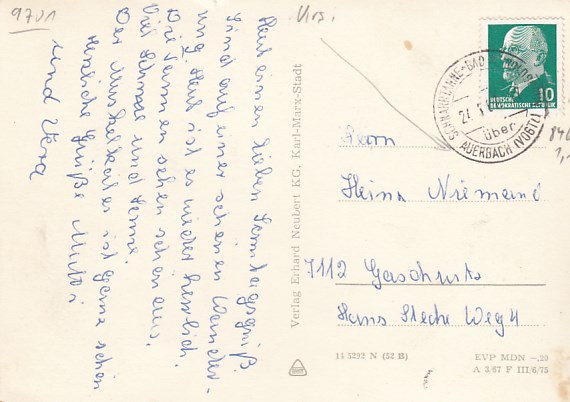 9701
Urs.
Heut einen lieben Sonntagsgruß.
Sind auf einer schönen Wander-
ung. Heut ist es wieder herrlich.
Die Tannen sehen schön aus,
Viel Schnee und Sonne.
Der Muskelkater ist ganz schön
Herzliche Grüße Mutti
und Vera
Verlag Erhard Neubert KG, Karl-Marx-Stadt
10
DEUTSCHE
DEMOKRATISCHE REPUBLIK
über
AUERBACH (VOGTL)
Herrn
Heinz Niemand
7112 Gaschwitz
Hans Steche Weg 4
11 5292 N (52 B)
EVP MDN -,20
A 3/67 F III/6/75